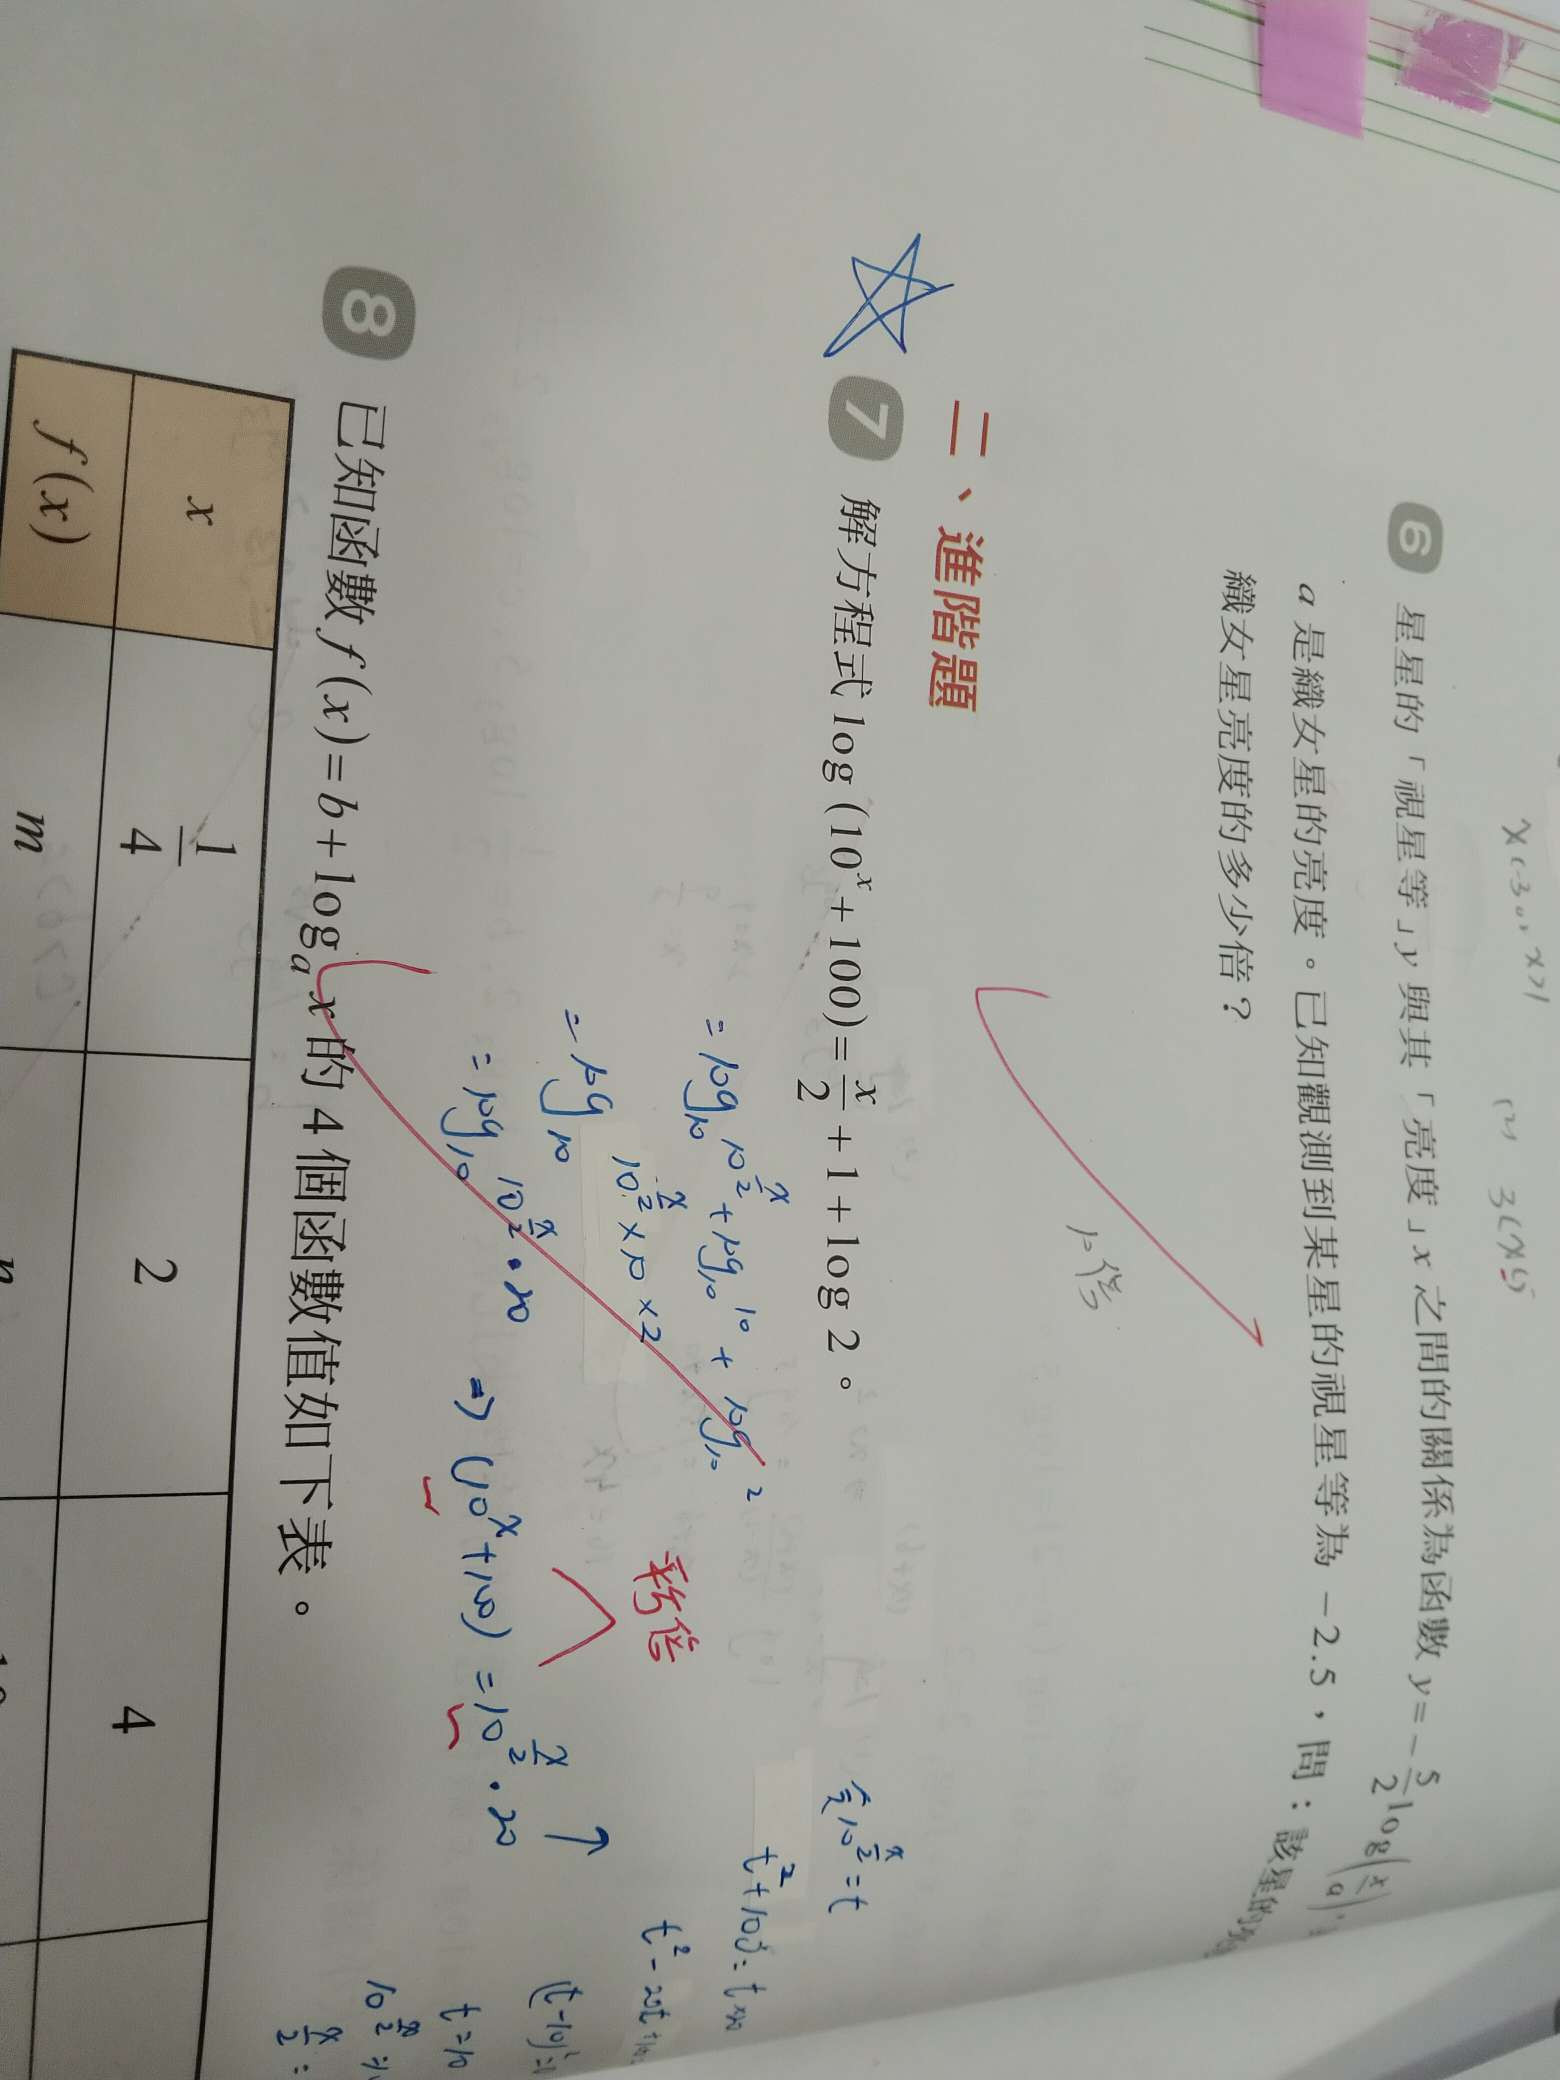 x(-30, x>1
(2) 3(x5
6 星星的「視星等」y 與其「亮度」x 之間的關係為函數 y=-\frac{5}{2}log(\frac{x}{a}),
a 是織女星的亮度。已知觀測到某星的視星等為 -2.5,問:該星的
織女星亮度的多少倍?
10倍
二、進階題
7 解方程式 log (10^x+100)=\frac{x}{2}+1+log 2。
=log_{10} 10^{\frac{x}{2}}+log_{10} 10+log_{10} 2
=log_{10} 10^{\frac{x}{2}}×10×2
=log_{10} 10^{\frac{x}{2}}·20 ⇒ (10^x+100)=10^{\frac{x}{2}}·20
兩倍
令10^{\frac{x}{2}}=t
t^2+100=t×20
t^2-20t+100
(t-10)^2=
t=10
10^{\frac{x}{2}}=
\frac{x}{2}=
8 已知函數 f(x)=b+log_a x 的 4 個函數值如下表。
x \frac{1}{4} 2 4
f(x) m n